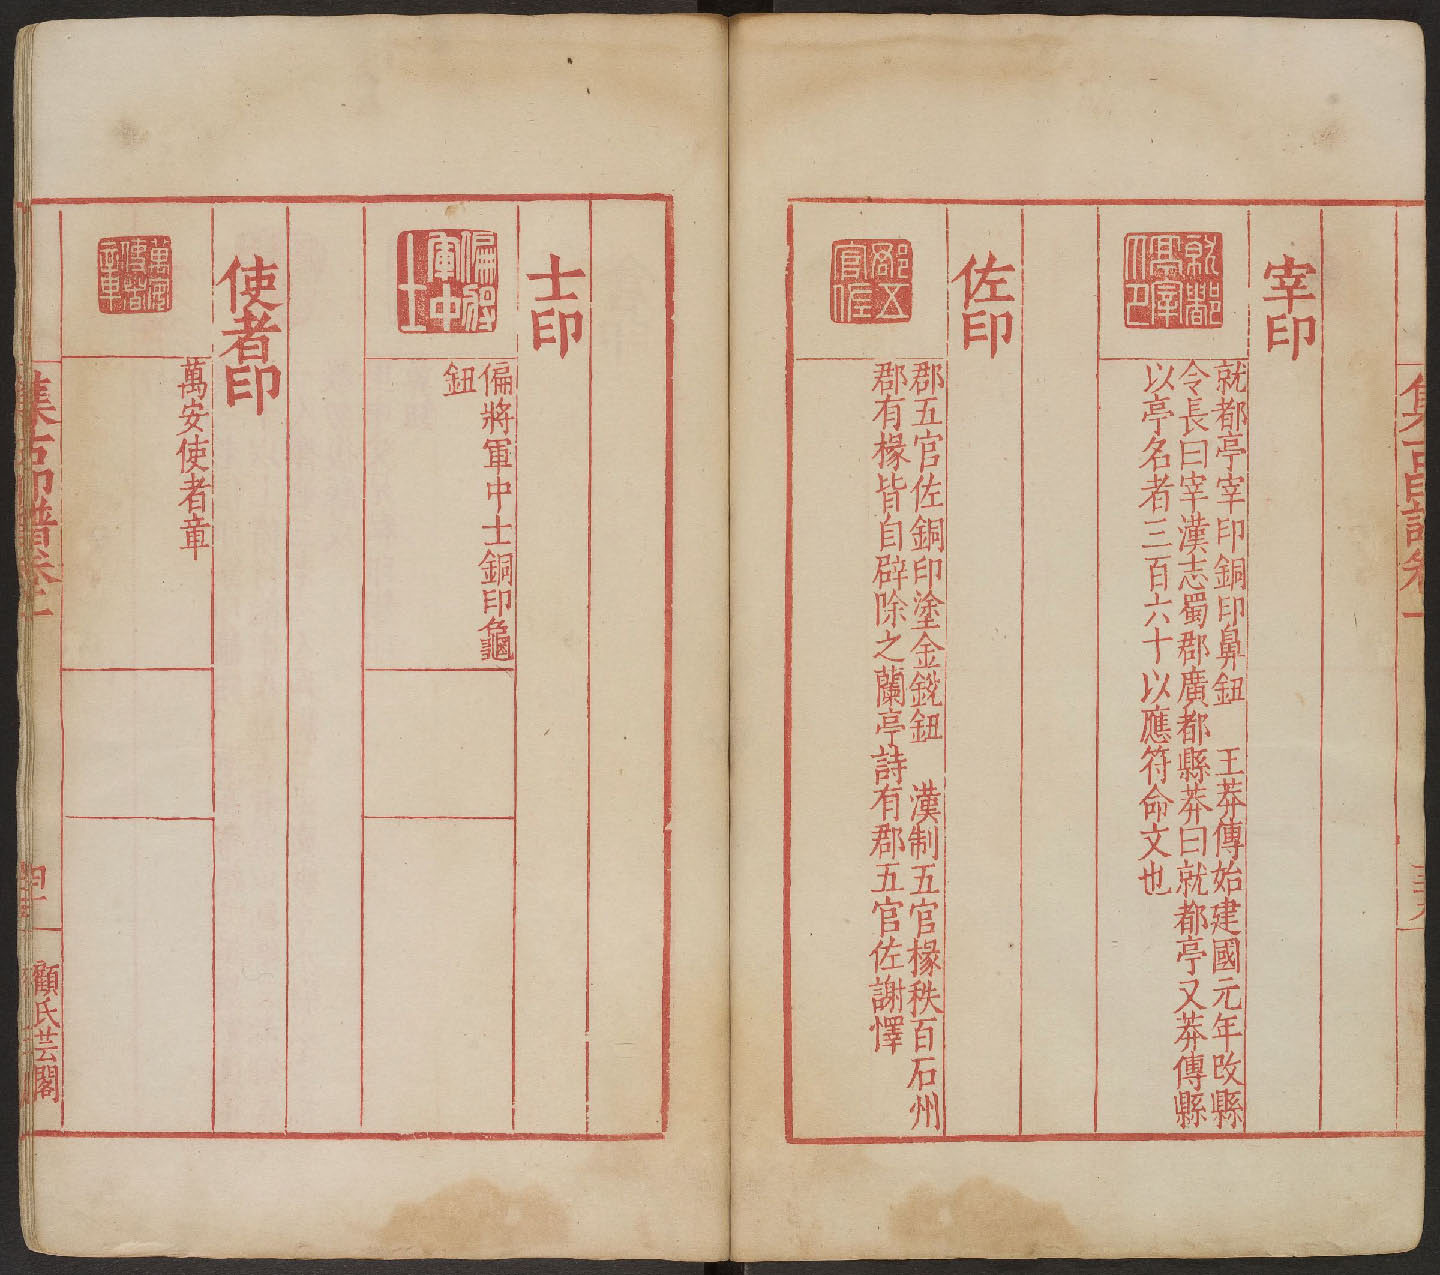 宰印
就都亭宰印銅印鼻鈕　王莽傳始建國元年改縣
令長曰宰漢志蜀郡廣都縣莽曰就都亭又莽傳縣
以亭名者三百六十以應符命文也
佐印
郡五官佐
郡五官佐銅印塗金銳鈕　漢制五官椽秩百石州
郡有椽皆自辟除之蘭亭詩有郡五官佐謝懌
士印
偏將軍中士
偏將軍中士銅印龜
鈕
使者印
萬安使者章
集古印譜卷二
顧氏芸閣